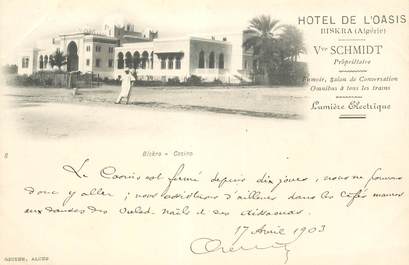 HOTEL DE L'OASIS
BISKRA (Algérie)
Vve SCHMIDT
Propriétaire
Fumoir, Salon de Conversation
Omnibus à tous les trains
Lumière Electrique
Biskra - Casino
Le Casino est fermé depuis dix jours, nous ne pouvons
donc y aller ; nous assistions d'ailleurs dans les cafés maures
aux danses des Ouled-naïls et des
17 Avril 1903
GEISER, ALGER